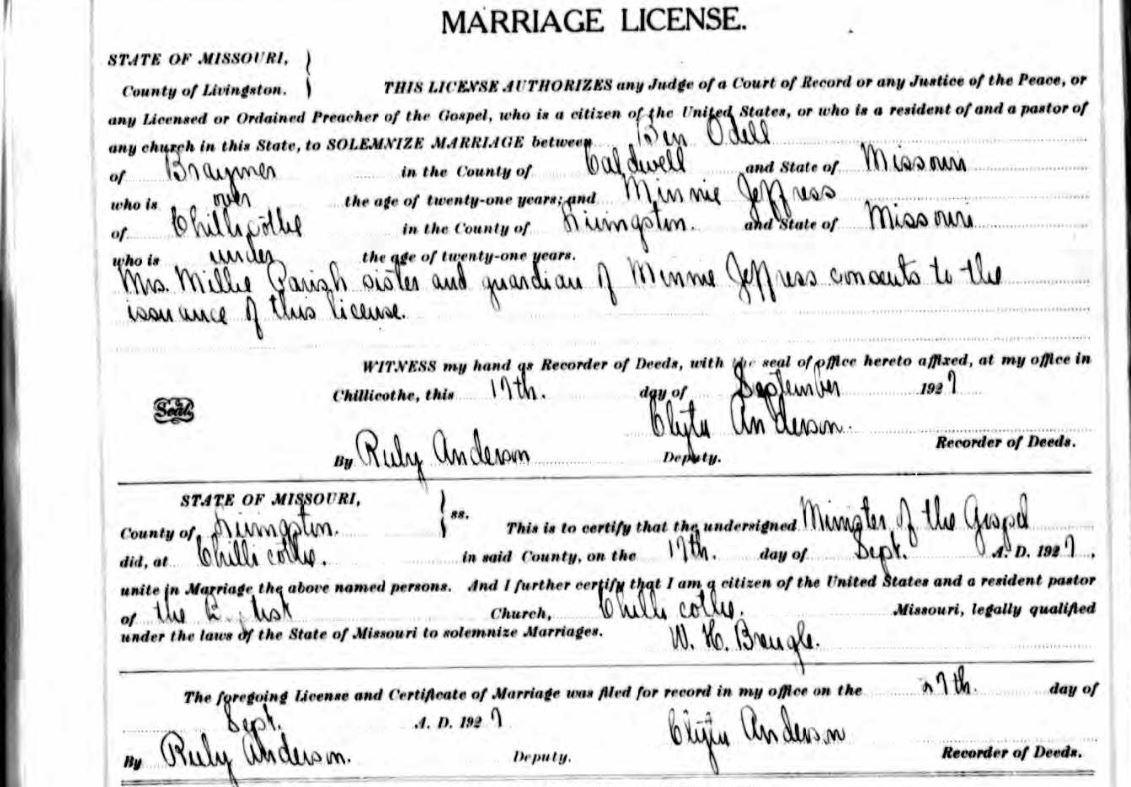 MARRIAGE LICENSE.
STATE OF MISSOURI,
County of Livingston. THIS LICENSE AUTHORIZES any Judge of a Court of Record or any Justice of the Peace, or
any Licensed or Ordained Preacher of the Gospel, who is a citizen of the United States, or who is a resident of and a pastor of
any church in this State, to SOLEMNIZE MARRIAGE between Ben Odell
of Braymer in the County of Caldwell and State of Missouri
who is over the age of twenty-one years; and Minnie Jeffress
of Chillicothe in the County of Livingston. and State of Missouri
who is under the age of twenty-one years.
Mrs. Millie Parish sister and guardian of Minnie Jeffress consents to the
issuance of this license.
WITNESS my hand as Recorder of Deeds, with the seal of office hereto affixed, at my office in
Chillicothe, this 17th. day of September 1927
Seal Anderson. Recorder of Deeds.
By Ruby Anderson Deputy.
STATE OF MISSOURI,
County of Livingston. ss. This is to certify that the undersigned Minister of the Gospel
did, at Chillicothe. in said County, on the 17th. day of Sept. A. D. 1927,
unite in Marriage the above named persons. And I further certify that I am a citizen of the United States and a resident pastor
of the Church, Chillicothe. Missouri, legally qualified
under the laws of the State of Missouri to solemnize Marriages. W. H.
The foregoing License and Certificate of Marriage was filed for record in my office on the 27th. day of
Sept. A. D. 1927 Anderson
By Ruby Anderson. Deputy. Recorder of Deeds.